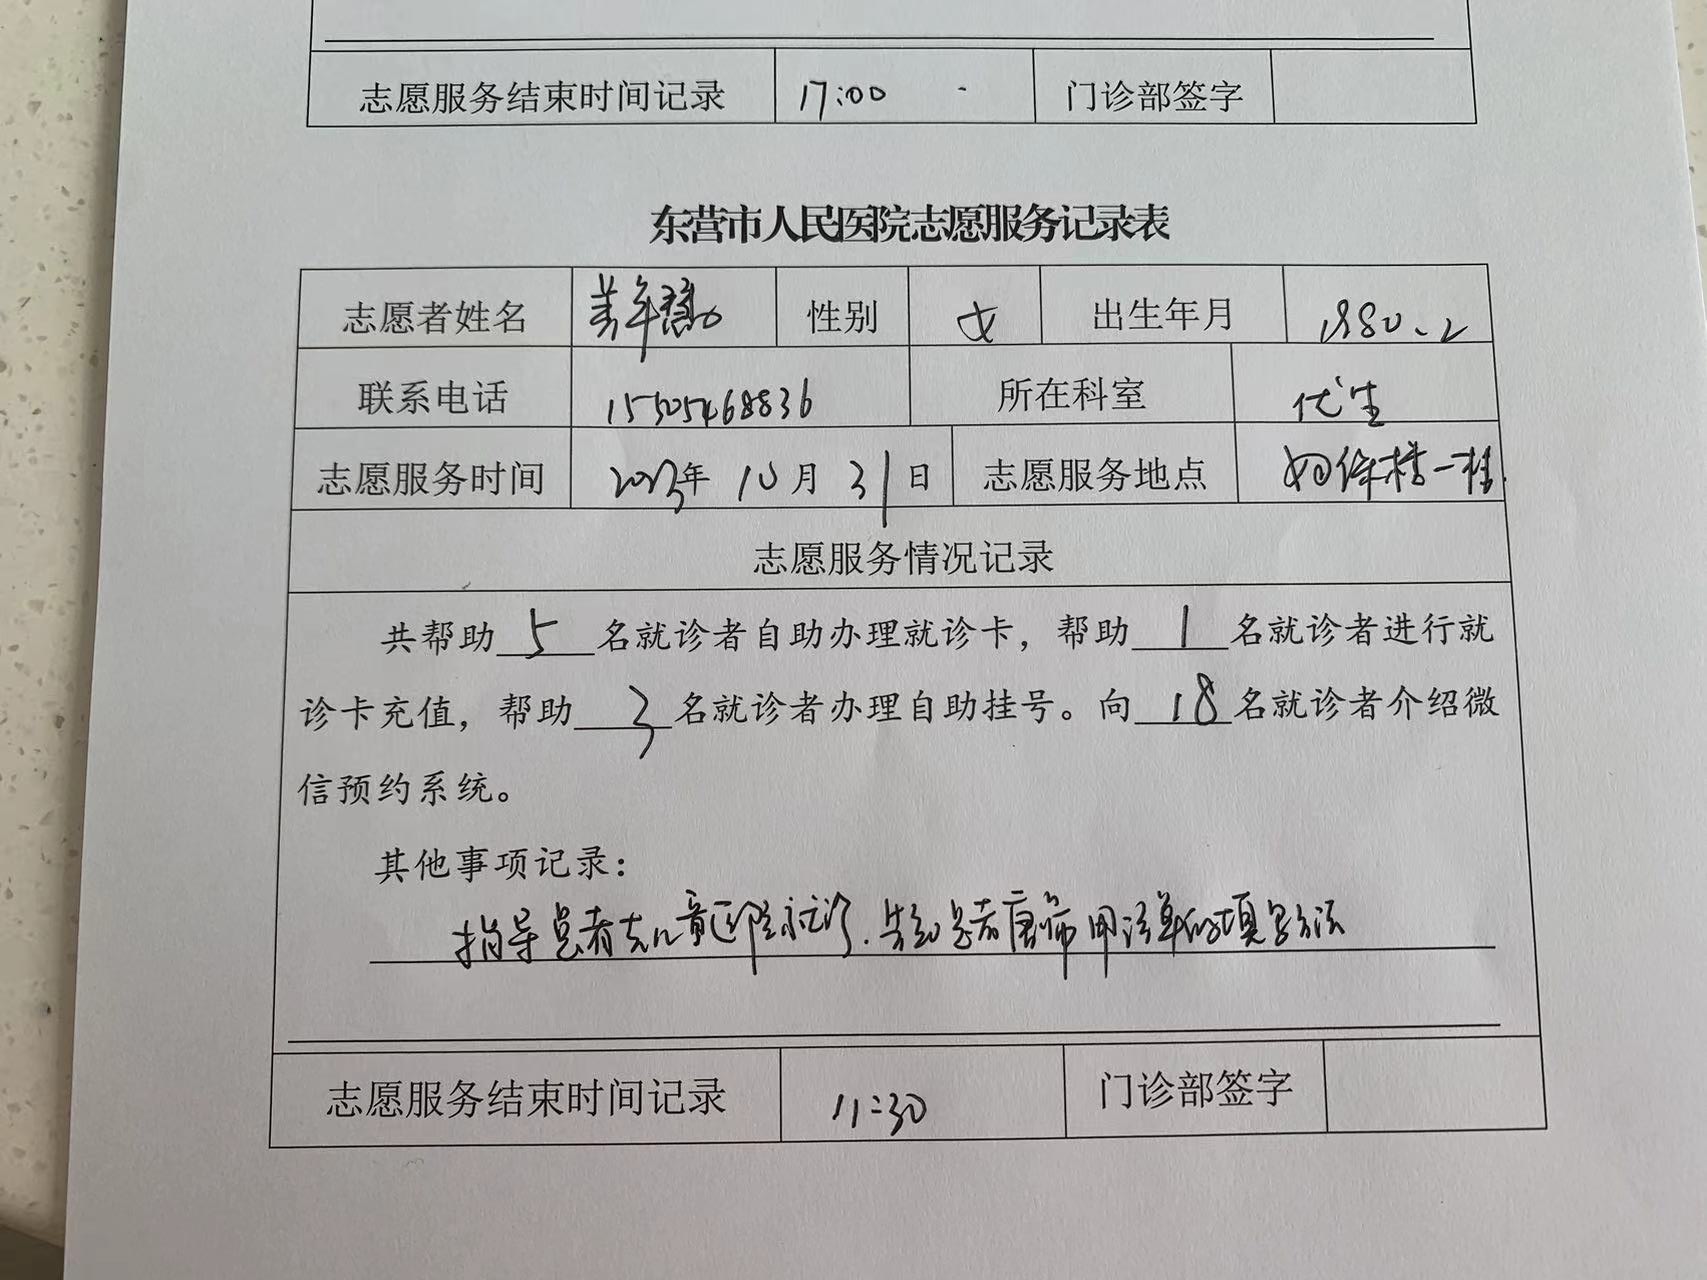 志愿服务结束时间记录 17:00 门诊部签字
东营市人民医院志愿服务记录表
志愿者姓名 性别 女 出生年月 1980.2
联系电话 15505468836 所在科室 优生
志愿服务时间 2023年 10月 31日 志愿服务地点 妇保楼一楼
志愿服务情况记录
共帮助 5 名就诊者自助办理就诊卡，帮助 1 名就诊者进行就
诊卡充值，帮助 3 名就诊者办理自助挂号。向 18 名就诊者介绍微
信预约系统。
其他事项记录：
指导患者去儿童医院就诊.告知患者唐筛申请单的填写方法
志愿服务结束时间记录 11:30 门诊部签字